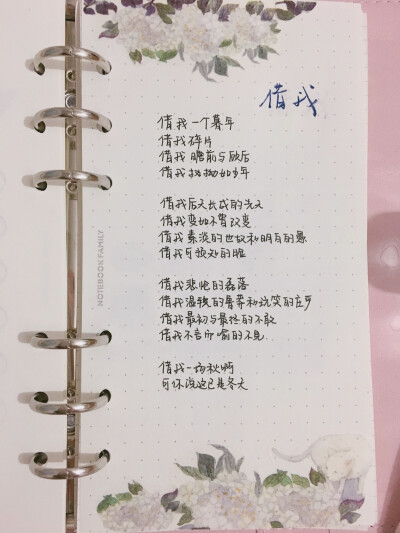 借我
借我一个暮年
借我碎片
借我瞻前与顾后
借我执拗如少年
借我后天长成的先天
借我变如不曾改变
借我素淡的世故和明白的愚
借我可预知的险
借我悲怆的磊落
借我温软的鲁莽和玩笑的庄严
借我最初与最终的不敢
借我不言而喻的不见
借我一场秋啊
可你说这已是冬天
NOTEBOOK FAMILY